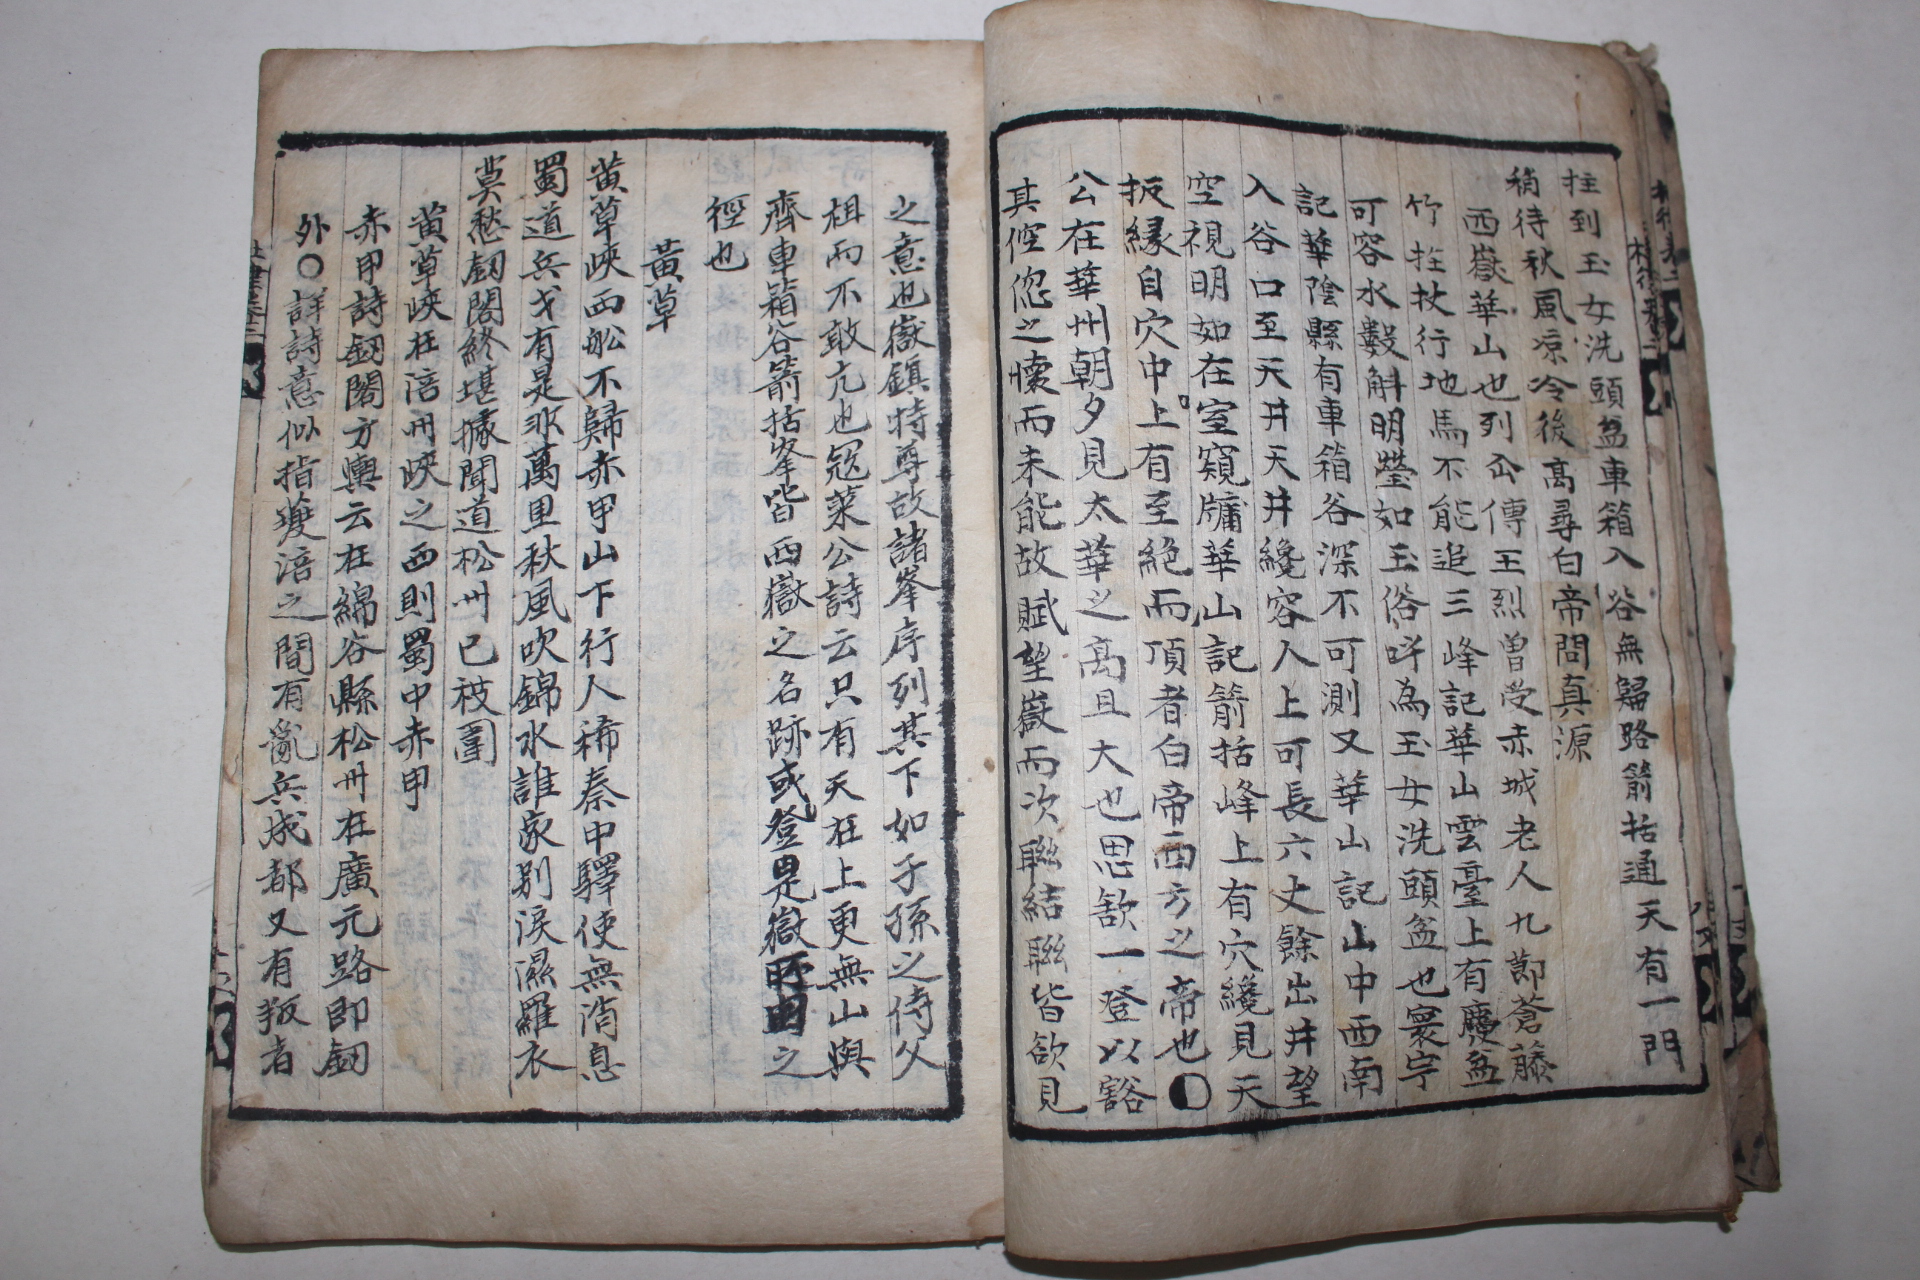 拄到玉女洗頭盆車箱入谷無歸路箭括通天有一門
稍待秋風凉冷後高尋白帝問真源
西嶽華山也列仚傳王烈曽受赤城老人九節蒼藤
竹拄杖行地馬不能追三峰記華山雲臺上有
可容水數斛明瑩如玉俗呼為玉女洗頭盆也寰宇
記華陰縣有車箱谷深不可測又華山記山中西南
入谷口至天井天井纔容人上可長六丈餘出井望
空視明如在室窺牖華山記箭括峰上有穴纔見天
扳緣自穴中上有至絶而頂者白帝西方之帝也
公在華州朝夕見太華之高且大也思欲一登以豁
其倥傯之懷而未能故賦望嶽而次聮結聮皆欲見
之意也嶽鎮特尊故諸峯序列其下如子孫之侍父
祖而不敢亢也冦萊公詩云只有天在上更無山與
齊車箱谷箭括峯皆西嶽之名跡或登是嶽所由之
徑也
黃草
黃草峽西舩不歸赤甲山下行人稀秦中驛使無消息
蜀道兵戈有是非萬里秋風吹錦水誰家別淚濕羅衣
莫愁劔閣終堪據聞道松州已被圍
黃草峽在涪州峽之西則蜀中赤甲
赤甲詩劔閣方輿云在綿谷縣松州在廣元路即劔
外○詳詩意似指夔涪之間有亂兵成都又有叛者